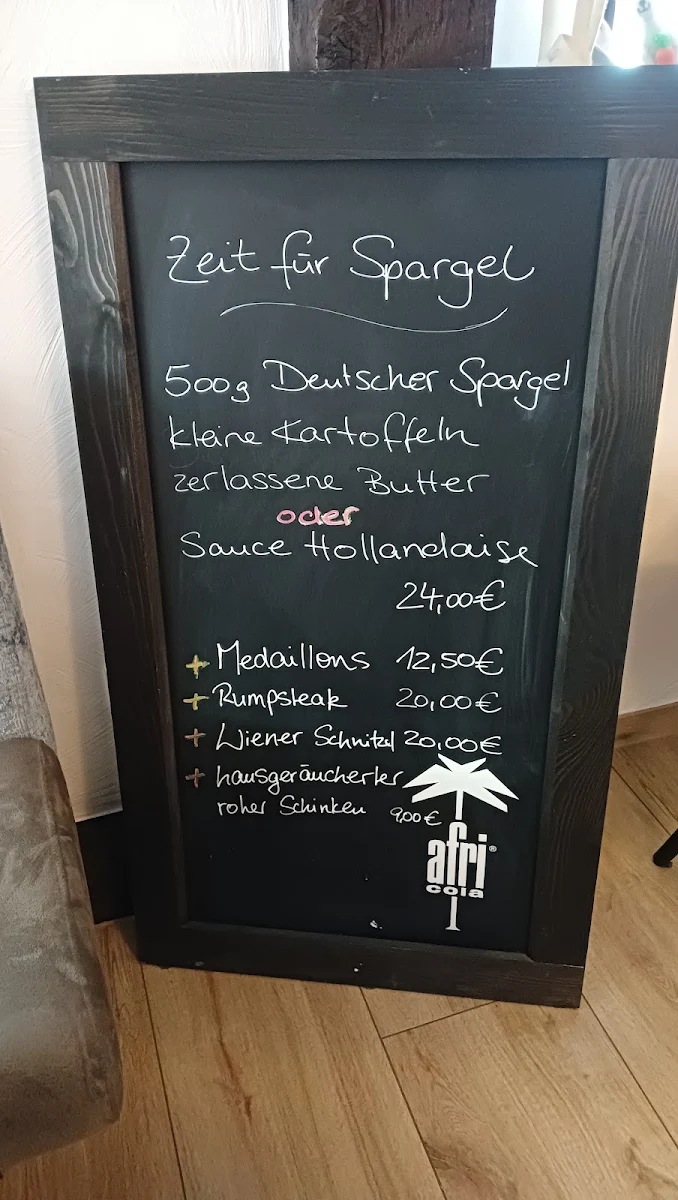 Zeit für Spargel
500g Deutscher Spargel
kleine Kartoffeln
zerlassene Butter
oder
Sauce Hollandaise
24,00€
+ Medaillons 12,50€
+ Rumpsteak 20,00€
+ Wiener Schnitzel 20,00€
+ hausgeräucherter
roher Schinken 9,00€
afri®
cola